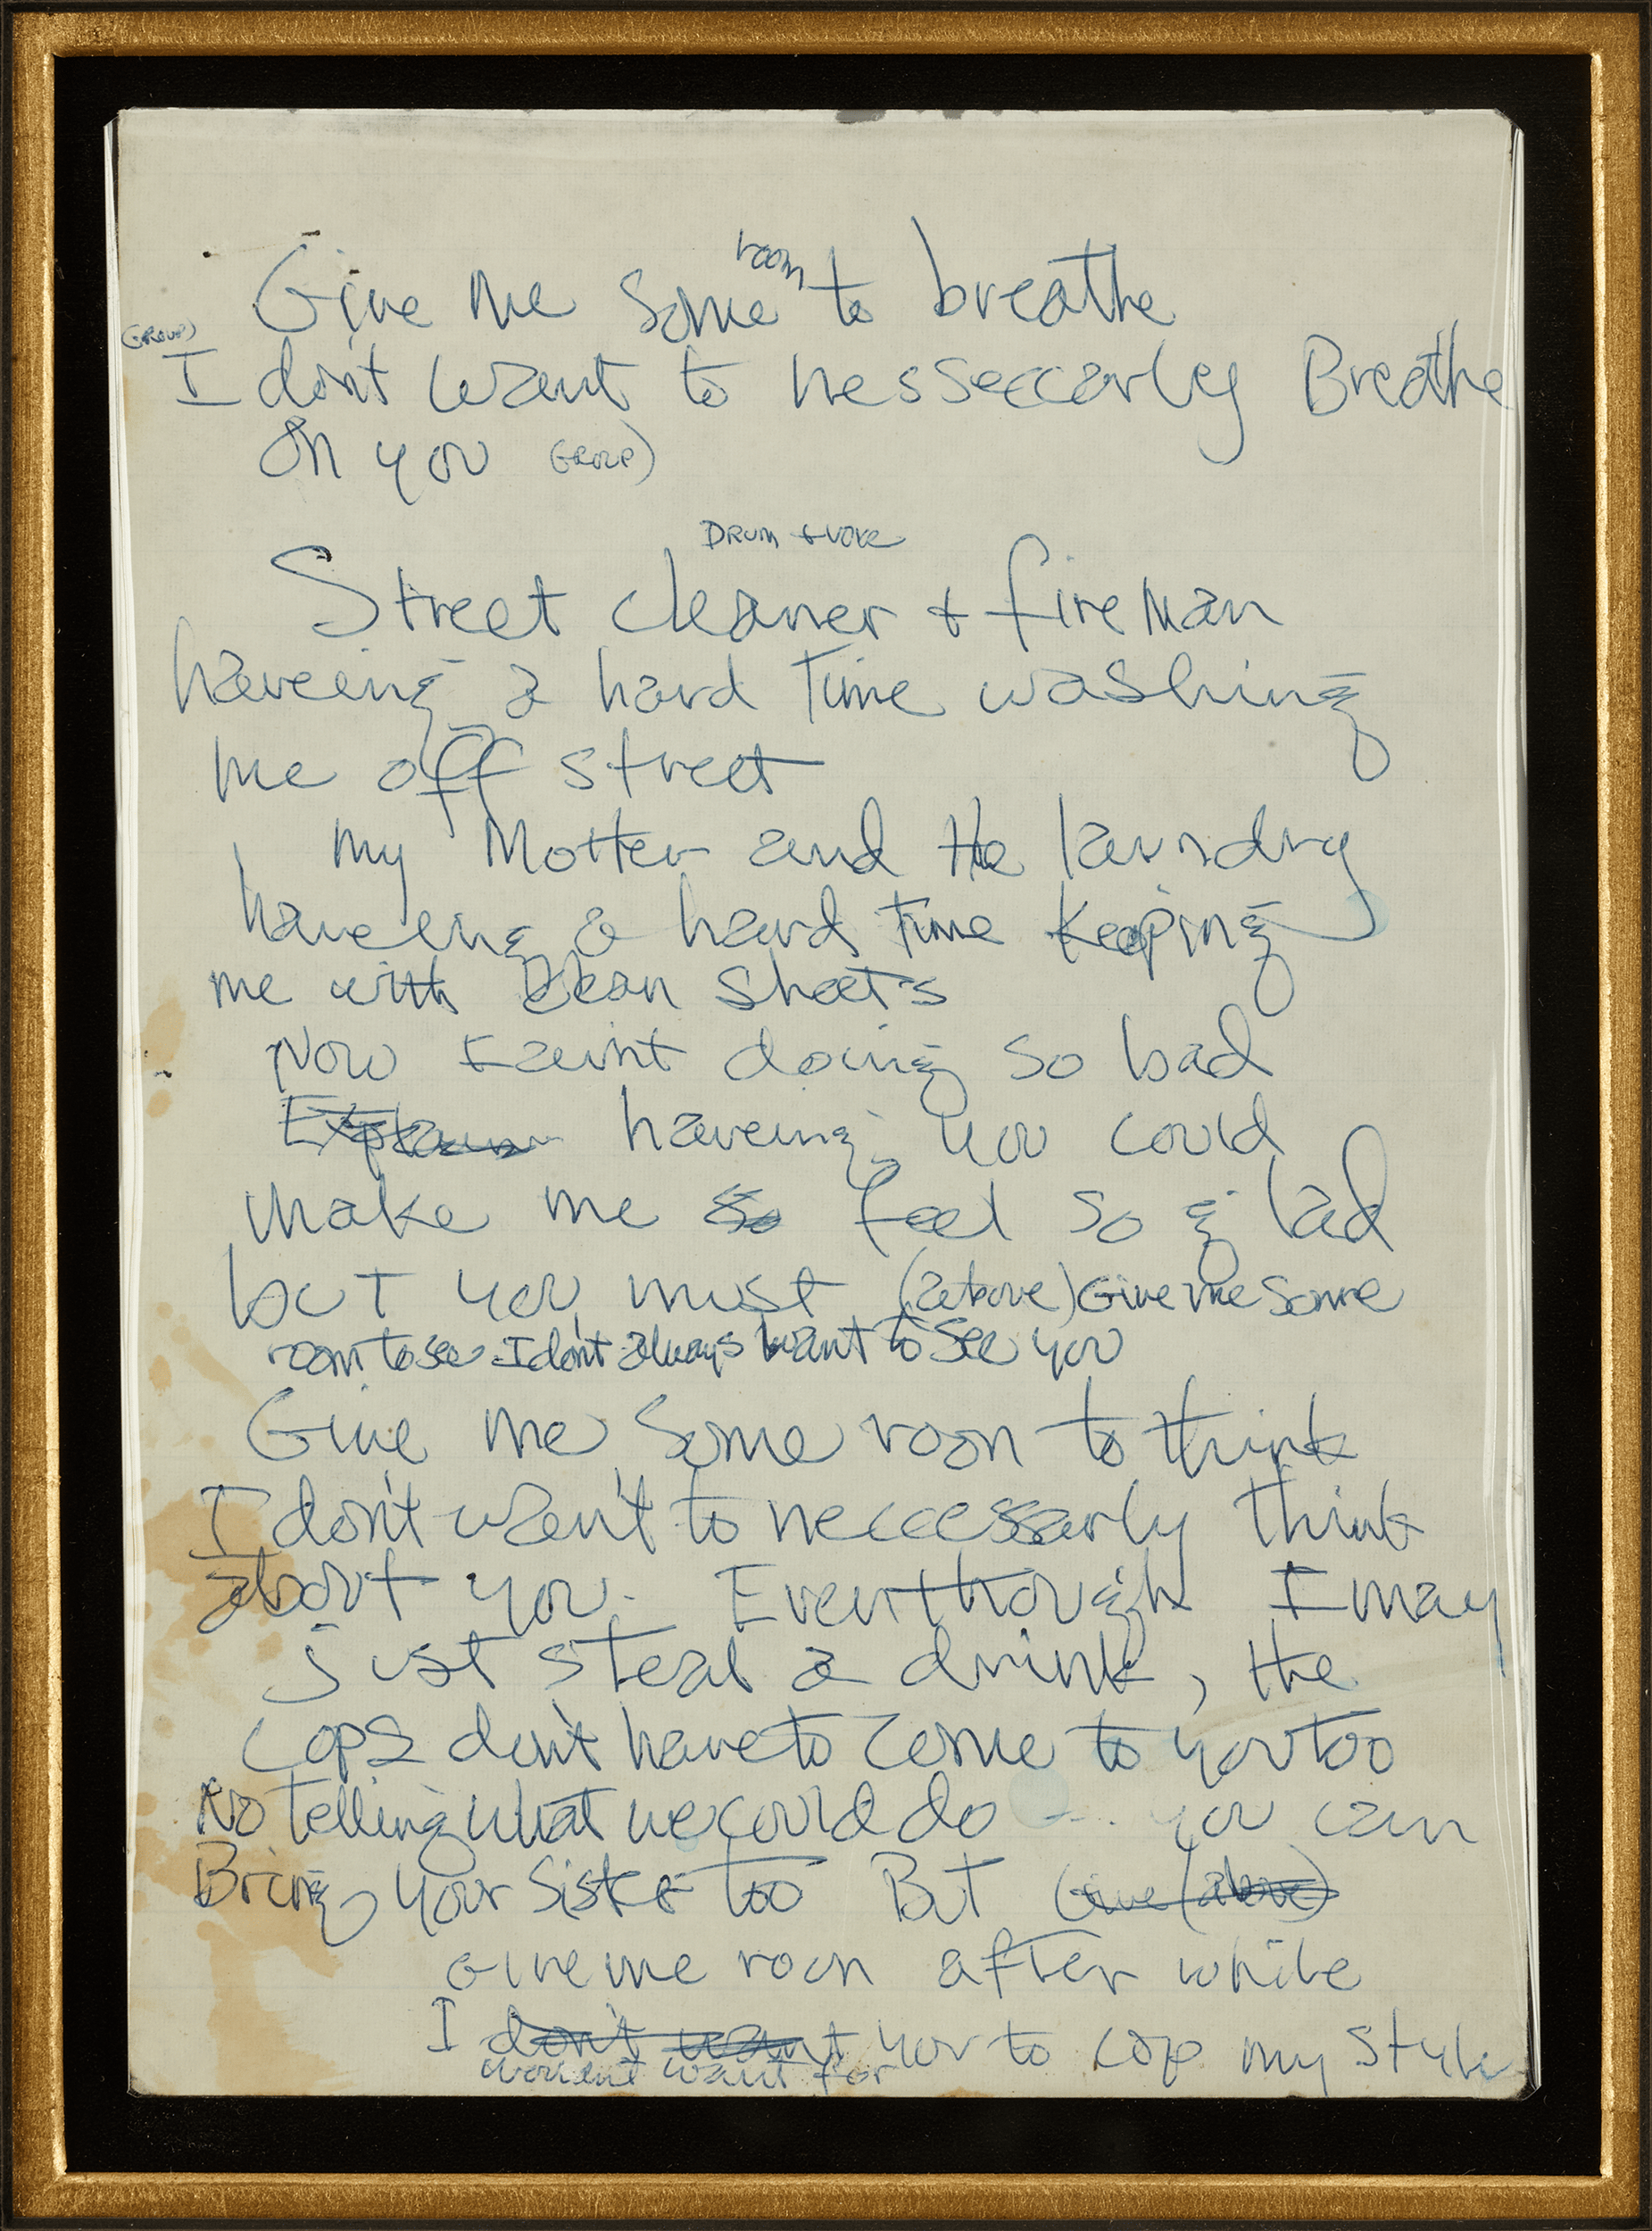 room
Give me some to breathe
(GROUP)
I don't want to nesseccarly Breathe
on you GROUP)
DRUM + VOICE
Street cleaner + fireman
haveing a hard time washing
me off street
my Mother and the laundry
haveing a hard time Keeping
me with clean sheets
Now I aint doing so bad
Explain haveing you could
make me so feel so glad
but you must (above) Give me some
room to see I don't always want to see you
Give me some room to think
I don't wan't to neccessarly think
about you. Eventhough I may
just steal a drink, the
cops don't have to come to you too
No telling what we could do ... you can
Bring your sister too But Give (above)
Give me room after while
I don't want you to cop my style
wouldnt want for